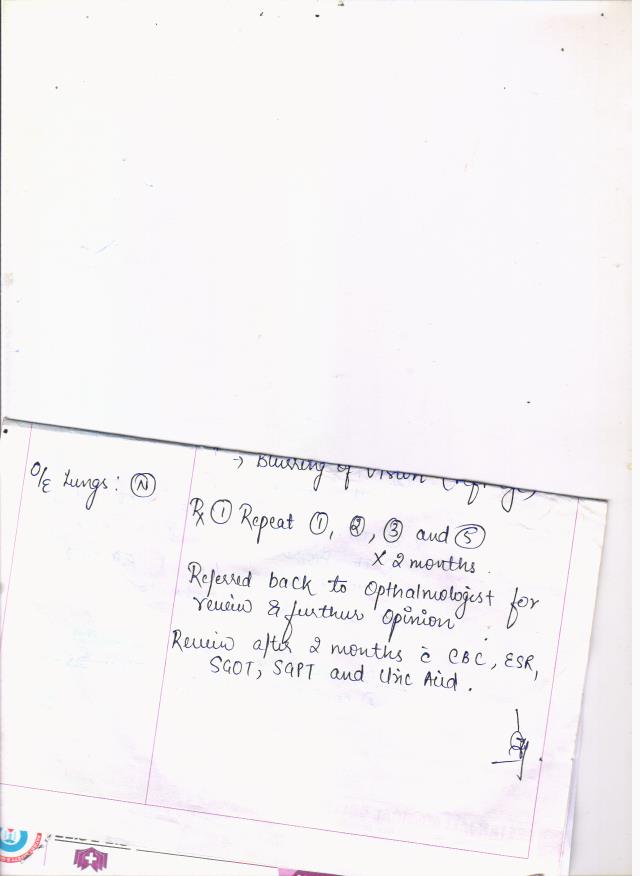 → Blurring of Vision
O/E Lungs: Ⓝ
Rx ① Repeat ①, ②, ③ and ⑤
X 2 months.
Referred back to Opthalmologist for
review & further Opinion
Review after 2 months c̄ CBC, ESR,
SGOT, SGPT and Uric Acid.